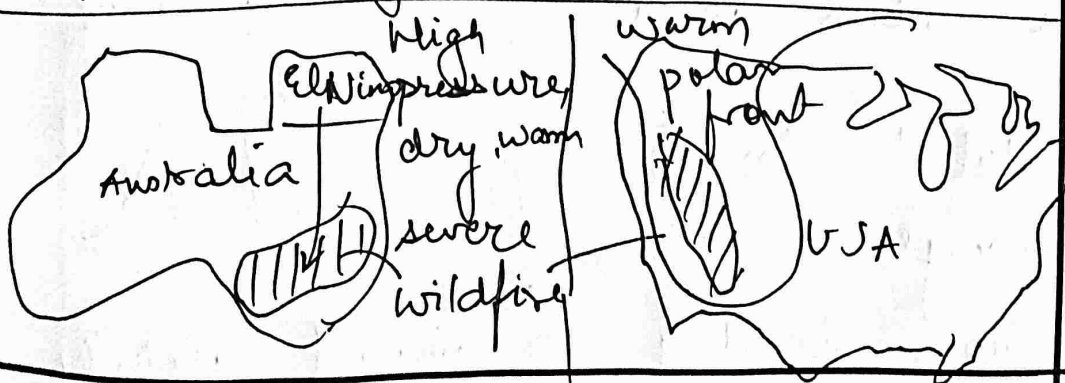 High
El Nino pressure,
dry, warm
Australia
severe
wildfire
warm
polar
front
USA